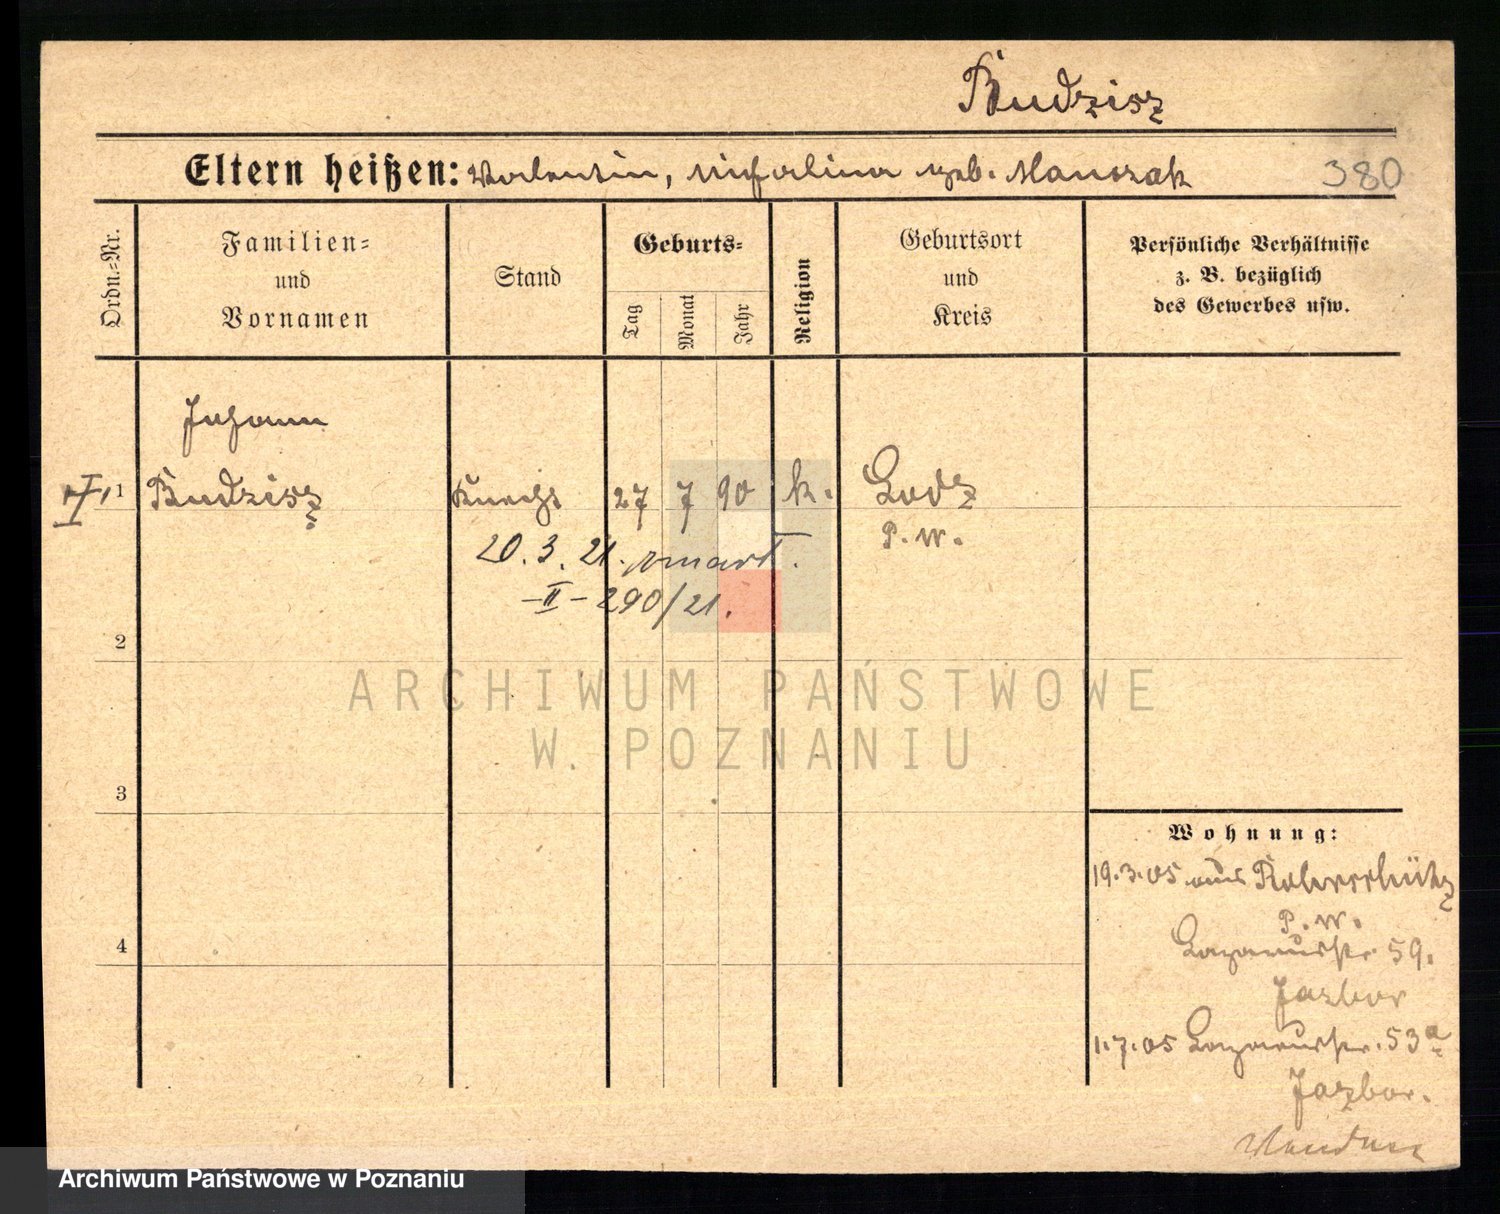 Budzisz
Eltern heißen: Valentin, Michalina geb. Manczak 380
Ordn.=Nr.
Familien=
und
Vornamen
Stand
Geburts=
Tag
Monat
Jahr
Religion
Geburtsort
und
Kreis
Persönliche Verhältnisse
z. B. bezüglich
des Gewerbes usw.
Johann
1 Budzisz Knecht 27 7 90 k. Lodz
P. W.
20. 3. 21. zmarł.
-II- 290/21.
2
3
4
ARCHIWUM PAŃSTWOWE
W. POZNANIU
Wohnung:
19.3.05 aus
P. W.
Lazarusstr. 59.
1.7.05 Lazarusstr. 53a
Archiwum Państwowe w Poznaniu